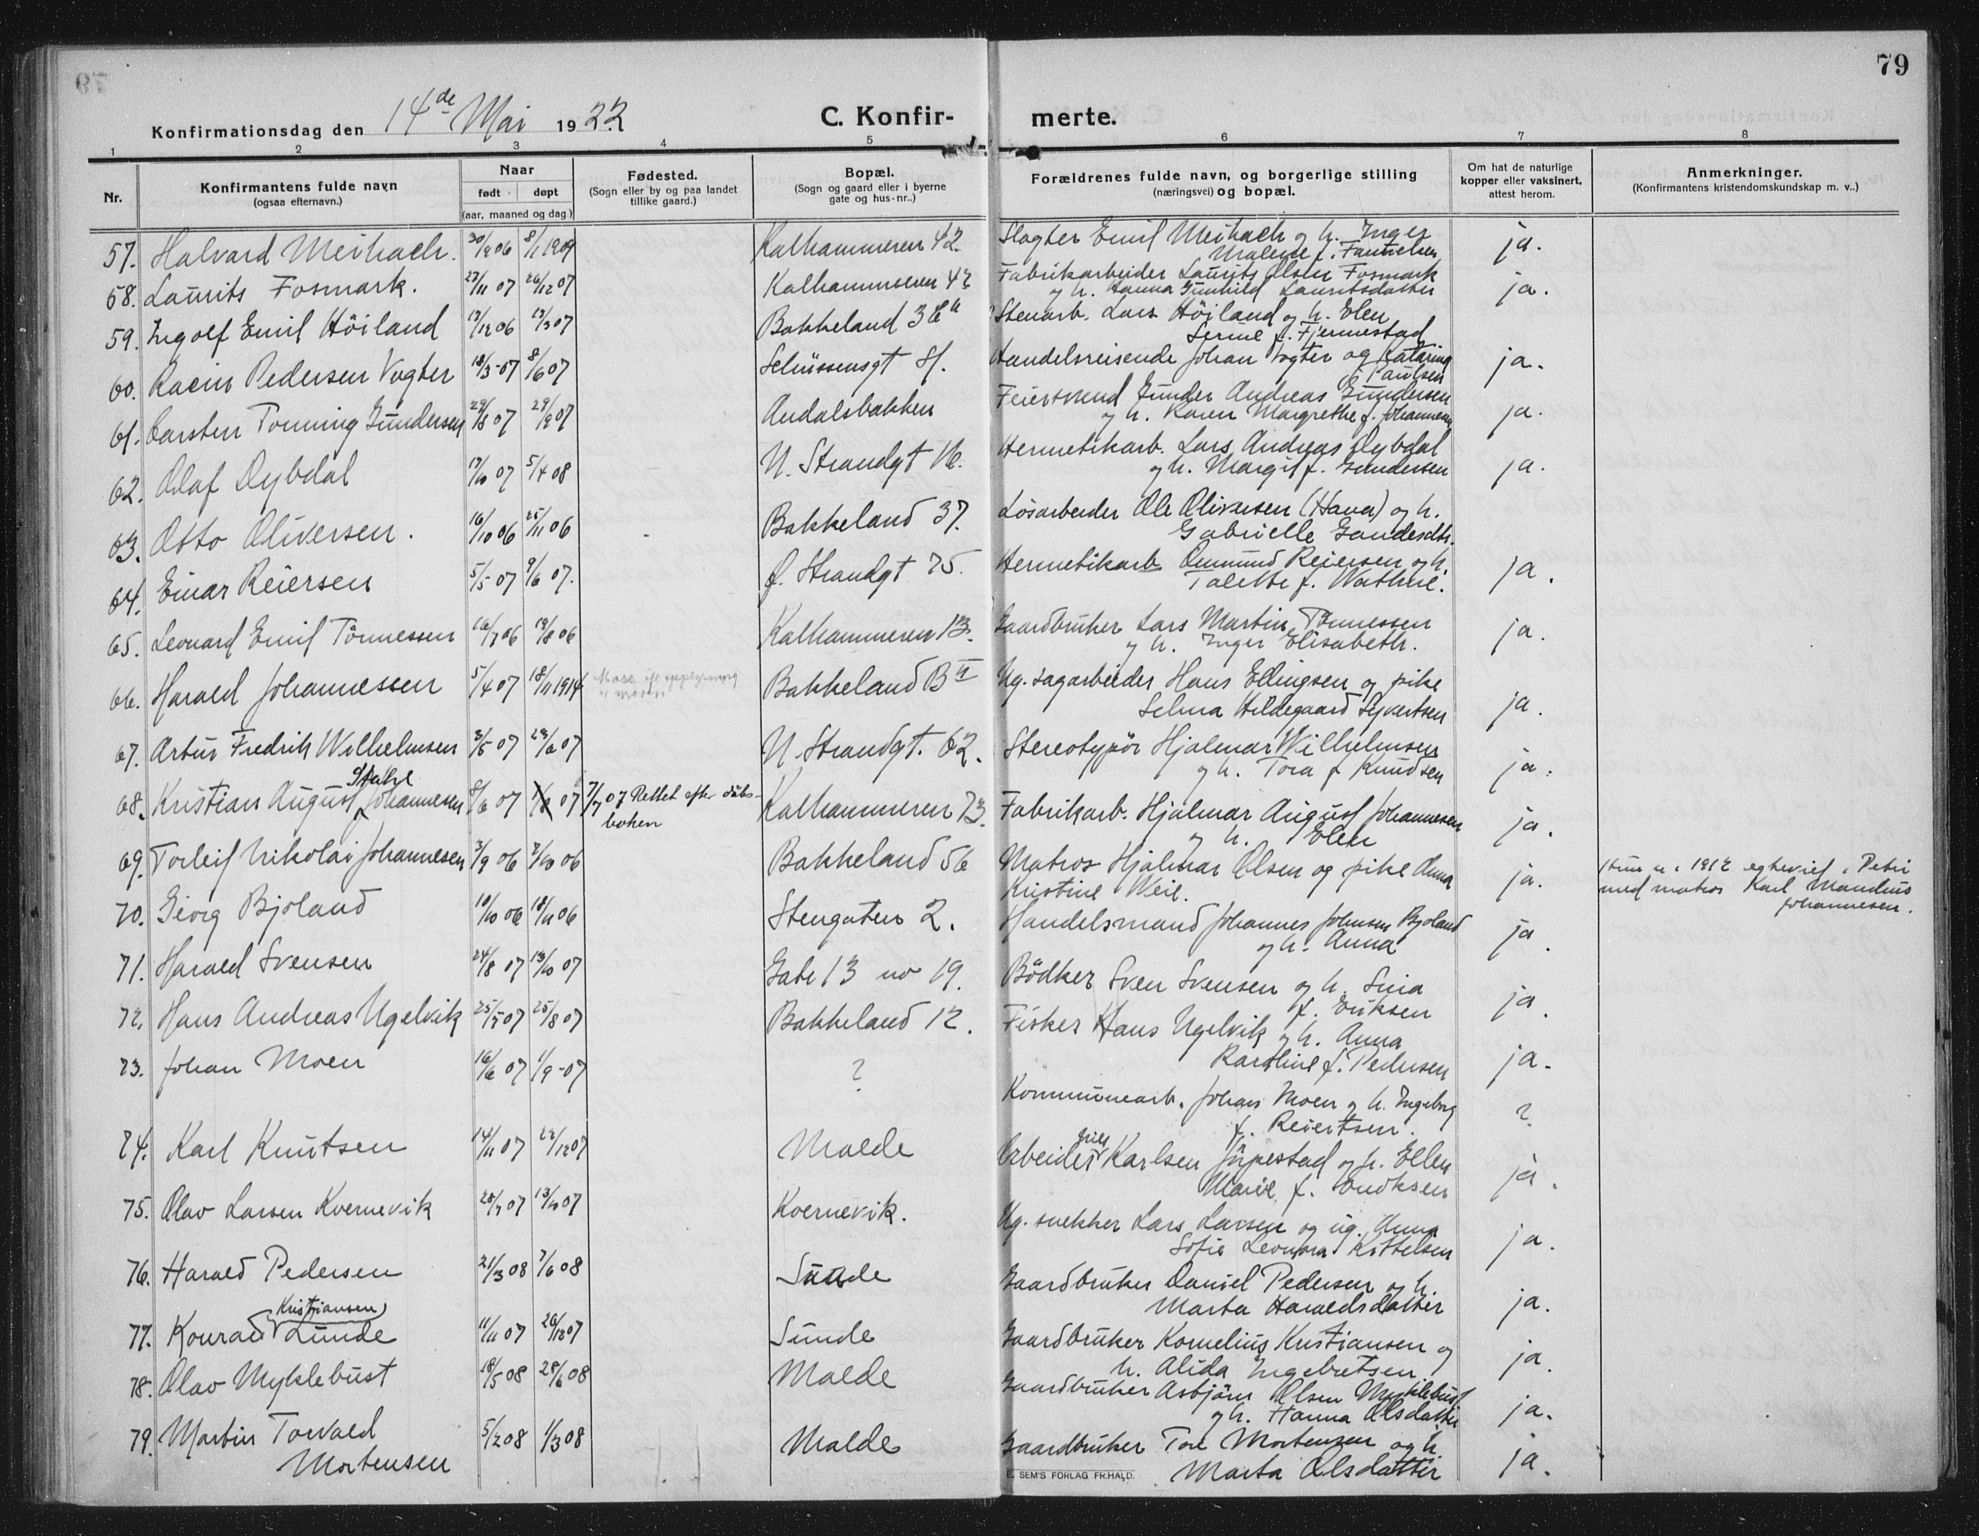 79
Konfirmationsdag den 14de Mai 1922
C. Konfir- merte.
1 2 3 4 5 6 7 8
Nr.
Konfirmantens fulde navn
(ogsaa efternavn.)
Naar
født døpt
(aar, maaned og dag)
Fødested.
(Sogn eller by og paa landet
tillike gaard.)
Bopæl.
(Sogn og gaard eller i byerne
gate og hus-nr.)
Forældrenes fulde navn, og borgerlige stilling
(næringsvei) og bopæl.
Om hat de naturlige
kopper eller vaksinert,
attest herom.
Anmerkninger.
(Konfirmantens kristendomskundskap m. v.)
57. Halvard Meihach. 30/9 06 8/1 1909 Kalhammeren 42 Slagter Emil Meihach og h. Inger ja.
Malene f.
58. Laurits Fosmark. 27/11 07 26/12 07 Kalhammeren 42 Fabrikarbeider Laurits Olsen Fosmark
og h. Hanna Gunhild Lauritsdatter ja.
59. Ingolf Emil Höiland 13/12 06 13/3 07 Bakkeland 38 Stenarb. Lars Höiland og h. Elen
Serine f. Fjermestad
60. Pedersen Vogter 18/3 07 8/6 07 Handelsreisende Johan Vogter og Katarina ja.
f. Paulsen
61. Carsten Tonning Gundersen 29/8 07 29/9 07 Andalsbakken Feiersvend Gunder Andreas Gundersen
og h. Karen Margrethe f. Johannesen ja.
62. Olaf Dybdal 19/10 07 5/4 08 N. Strandgt 16. Hermetikarb. Lars Andreas Dybdal
og h. Margit f. Gundersen ja.
63. Otto Oliversen. 16/10 06 25/11 06 Bakkeland 37. Løsarbeider Ole Oliversen (Hana) og h.
Gabrielle
64. Einar Reiersen 5/5 07 9/6 07. Ø. Strandgt 75. Hermetikarb Omund Reiersen og h.
Talette f. Wathne. ja.
65. Leonard Emil Tönnessen 16/7 06 19/8 06 Kalhammeren 13. Gaardbruker Lars Martin Tönnessen
og h. Inger Elisabeth. ja.
66. Harald Johannessen 5/4 07 18/11 1914 Bakkeland B Ug. sagarbeider Hans Ellingsen og pike
Selma Hildegaard Syvertsen ja.
67. Artur Fredrik Wilhelmsen 3/5 07 23/6 07 N. Strandgt. 62. Stereotypør Hjalmar Wilhelmsen
og h. Tora f. Knudsen ja.
Stahl
68. Kristian August Johannesen 8/6 07 07 7/7 07 Rettet efter daabs-
boken Kalhammeren 73. Fabrikarb. Hjalmar August Johannesen
og h. Elen ja.
69. Torleif Nikolai Johannesen 3/9 06 7/10 06 Bakkeland 56 Matros Hjalmar Olsen og pike Anna
Kristine Weie. ja. Hun er i 1912 egteviet i Petri
med matros Karl Mandius
Johannesen.
70. Georg Bjoland 10/10 06 18/11 06 Stengaten 2. Handelsmand Johannes Johnsen Bjoland
og h. Anna ja.
71. Harald Svensen 24/8 07 13/10 07 Gate 13 no 19. Bödker Sven Svensen og h. Sina
f. Eriksen ja.
72. Hans Andreas Ugelvik 25/7 07 25/8 07 Bakkeland 12. Fisker Hans Ugelvik og h. Anna
Karoline f. Pedersen ja.
73. Johan Moen 16/6 07 1/9-07 ? Kommunearb. Johans Moen og h. Ingeborg
f. Reiertsen. ?
74. Karl Knutsen 14/11 07 22/12 07 Malde Arbeider Karlsen og h. Ellen
Marie f. ja.
75. Olav Larsen Kvernevik 28/7 07 13/10 07 Kvernevik. Ug. snekker Lars Larsen og ug. Anna
Sofie Leonora Kittelsen ja.
76. Harald Pedersen 21/3 08 7/6 08 Sunde Gaardbruker Daniel Pedersen og h.
Marta Haraldsdatter ja.
Kristiansen
77. Konrad Sunde 11/11 07 26/12 07 Sunde Gaardbruker Kornelius Kristiansen og
h. Alida Ingebretsen ja.
78. Olav Myklebust 18/5 08 28/6 08 Malde Gaardbruker Asbjörn Olsen Myklebust
og h. Hanna Olsdatter ja.
79. Martin Torvald
Mortensen 5/2 08 1/3 08 Malde Gaardbruker Tore Mortensen og h.
Marta Olsdatter ja.
E. SEM'S FORLAG FR.HALD.